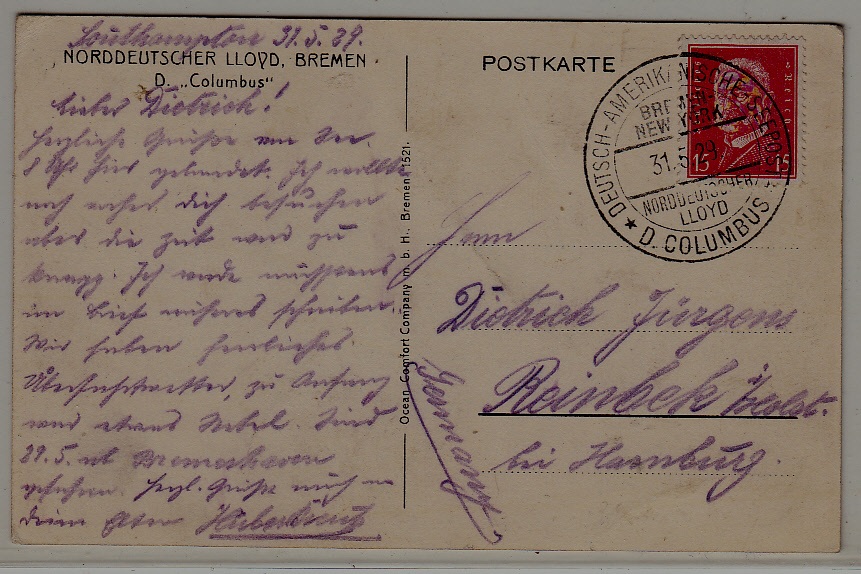 Southampton 31.5.29.
NORDDEUTSCHER LLOYD, BREMEN
D. „Columbus"
Lieber Dietrich!
Herzliche Grüße von See.
8 Uhr hier gelandet. Ich wollte
noch vorher dich besuchen
aber die Zeit war zu
knapp. Ich werde
im Brief näheres schreiben.
Wir haben herrliches
Überfahrtswetter, zu Anfang
war etwas Nebel. Sind
29.5. ab Bremerhaven
gefahren. Herzl. Grüße auch an
deine Eltern
Ocean Comfort Company m. b. H., Bremen 1521.
POSTKARTE
DEUTSCH-AMERIKANISCHE SEEPOST
BREMEN-
NEW YORK
31.5.29
NORDDEUTSCHER
LLOYD
★ D. COLUMBUS
Reich
15 15
Herrn
Dietrich Jürgens
Reinbek i/Holst.
bei Hamburg.
Germany